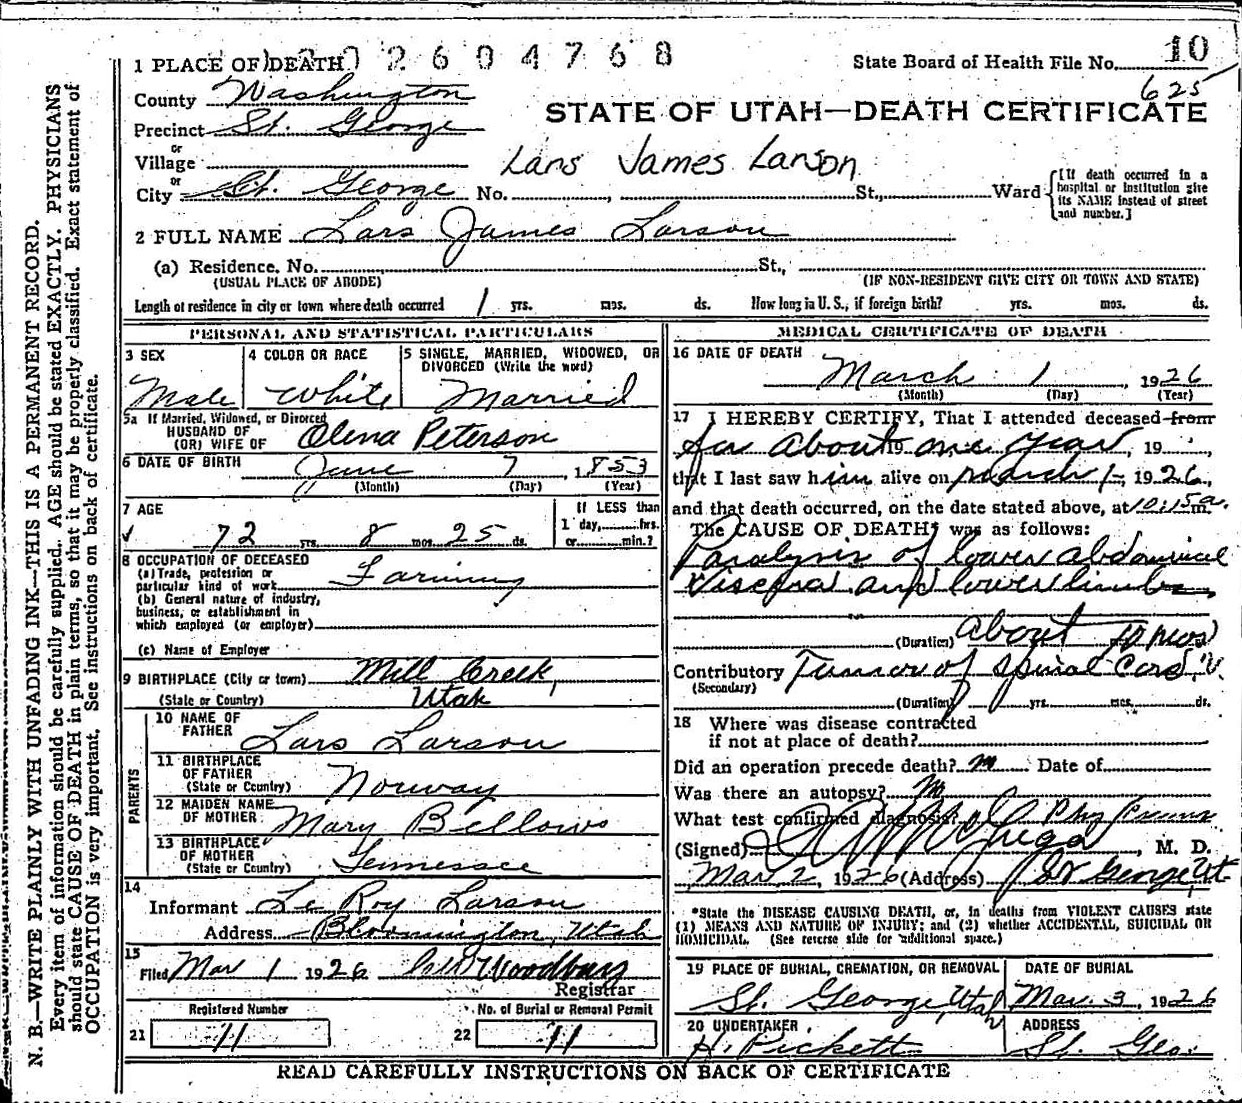 N. B.—WRITE PLAINLY WITH UNFADING INK—THIS IS A PERMANENT RECORD.
Every item of information should be carefully supplied. AGE should be stated EXACTLY. PHYSICIANS
should state CAUSE OF DEATH in plain terms, so that it may be properly classified. Exact statement of
OCCUPATION is very important. See instructions on back of certificate.
2604768
State Board of Health File No. 10
625
1 PLACE OF DEATH
County Washington
STATE OF UTAH—DEATH CERTIFICATE
Precinct St. George
or
Village
Lars James Larson
or
City St. George No. , St., Ward
[If death occurred in a
hospital or institution give
its NAME instead of street
and number.]
2 FULL NAME Lars James Larson
(a) Residence. No. St.,
(USUAL PLACE OF ABODE) (IF NON-RESIDENT GIVE CITY OR TOWN AND STATE)
Length of residence in city or town where death occurred 1 yrs. mos. ds. How long in U. S., if foreign birth? yrs. mos. ds.
PERSONAL AND STATISTICAL PARTICULARS
3 SEX
Male
4 COLOR OR RACE
White
5 SINGLE, MARRIED, WIDOWED, OR
DIVORCED (Write the word)
Married
5a If Married, Widowed, or Divorced
HUSBAND OF
(OR) WIFE OF Olena Peterson
6 DATE OF BIRTH June 7, 1853
(Month) (Day) (Year)
7 AGE
72 yrs. 8 mos. 25 ds.
If LESS than
1 day, hrs.
or min.?
8 OCCUPATION OF DECEASED
(a) Trade, profession or
particular kind of work Farming
(b) General nature of industry,
business, or establishment in
which employed (or employer)
(c) Name of Employer
9 BIRTHPLACE (City or town) Mill Creek,
(State or Country) Utah
PARENTS
10 NAME OF
FATHER Lars Larson
11 BIRTHPLACE
OF FATHER
(State or Country) Norway
12 MAIDEN NAME
OF MOTHER Mary Bellows
13 BIRTHPLACE
OF MOTHER
(State or Country) Tennessee
14
Informant Le Roy Larson
Address Bloomington, Utah
15
Filed Mar 1 1926 Woodbury
Registrar
Registered Number
21 11
No. of Burial or Removal Permit
22 11
MEDICAL CERTIFICATE OF DEATH
16 DATE OF DEATH
March 1, 1926
(Month) (Day) (Year)
17 I HEREBY CERTIFY, That I attended deceased from
for about 19 one year, 19 ,
that I last saw him alive on March 1, 1926,
and that death occurred, on the date stated above, at 10:15 a. m.
The CAUSE OF DEATH* was as follows:
Paralysis of lower abdominal
viscera and lower limbs
(Duration) about 10 mos
Contributory Tumor of spinal cord
(Secondary)
(Duration) yrs. mos. ds.
18 Where was disease contracted
if not at place of death?
Did an operation precede death? no Date of
Was there an autopsy? No
What test confirmed diagnosis? Phy
(Signed) McGregor, M. D.
Mar 2, 1926 (Address) St George, Ut
*State the DISEASE CAUSING DEATH, or, in deaths from VIOLENT CAUSES state
(1) MEANS AND NATURE OF INJURY; and (2) whether ACCIDENTAL, SUICIDAL OR
HOMICIDAL. (See reverse side for additional space.)
19 PLACE OF BURIAL, CREMATION, OR REMOVAL
St. George, Utah
DATE OF BURIAL
Mar. 3, 1926
20 UNDERTAKER
H. Pickett
ADDRESS
St. Geo.
READ CAREFULLY INSTRUCTIONS ON BACK OF CERTIFICATE